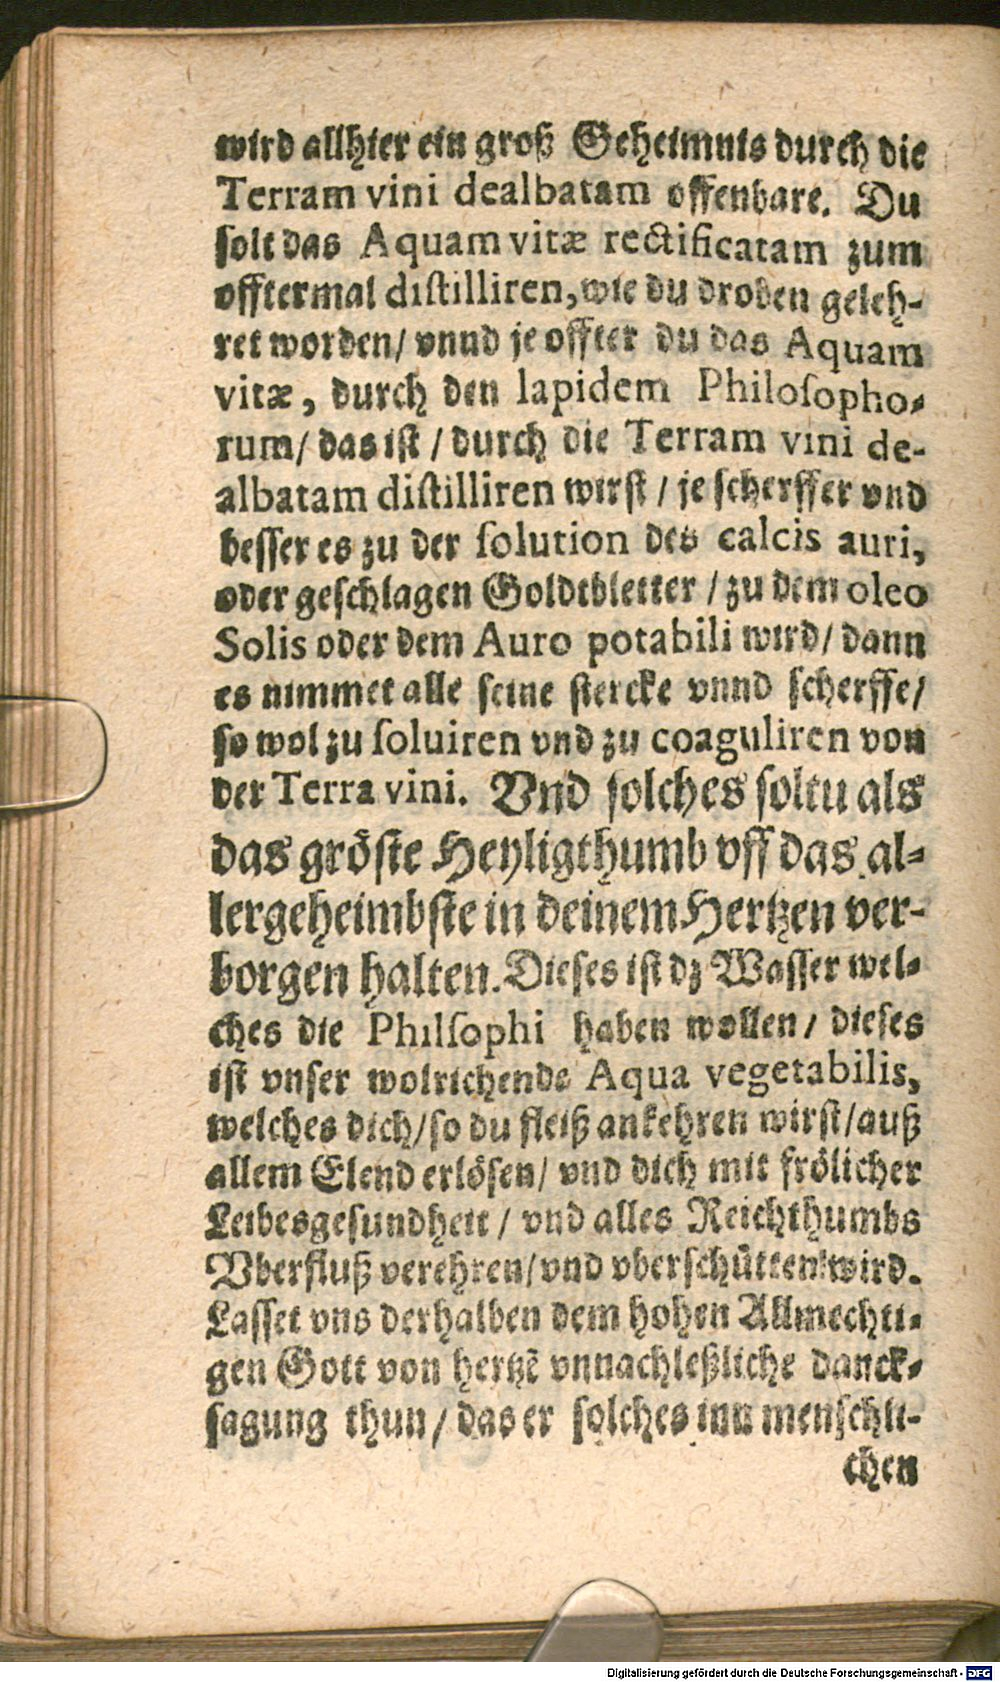 wird allhier ein groß Geheimnis durch die
Terram vini dealbatam offenbare. Du
solt das Aquam vitæ rectificatam zum
offtermal distilliren, wie du droben geleh-
ret worden/ vnnd je offter du das Aquam
vitæ, durch den lapidem Philosopho-
rum/ das ist / durch die Terram vini de-
albatam distilliren wirst / je scherffer vnd
besser es zu der solution des calcis auri,
oder geschlagen Goldtbletter / zu dem oleo
Solis oder dem Auro potabili wird/ dann
es nimmet alle seine stercke vnnd scherffe/
so wol zu soluiren vnd zu coaguliren von
der Terra vini. Vnd solches soltu als
das gröste Heyligthumb vff das al-
lergeheimbste in deinem Hertzen ver-
borgen halten. Dieses ist dz Wasser wel-
ches die Philsophi haben wollen/ dieses
ist vnser wolrichende Aqua vegetabilis,
welches dich/ so du fleiß ankehren wirst/ auß
allem Elend erlösen/ vnd dich mit frölicher
Leibesgesundheit / vnd alles Reichthumbs
Vberfluß verehren/ vnd vberschütten wird.
Lasset vns derhalben dem hohen Allmechti-
gen Gott von hertzẽ vnnachleßliche danck-
sagung thun/ das er solches inn menschli-
chen
Digitalisierung gefördert durch die Deutsche Forschungsgemeinschaft - DFG